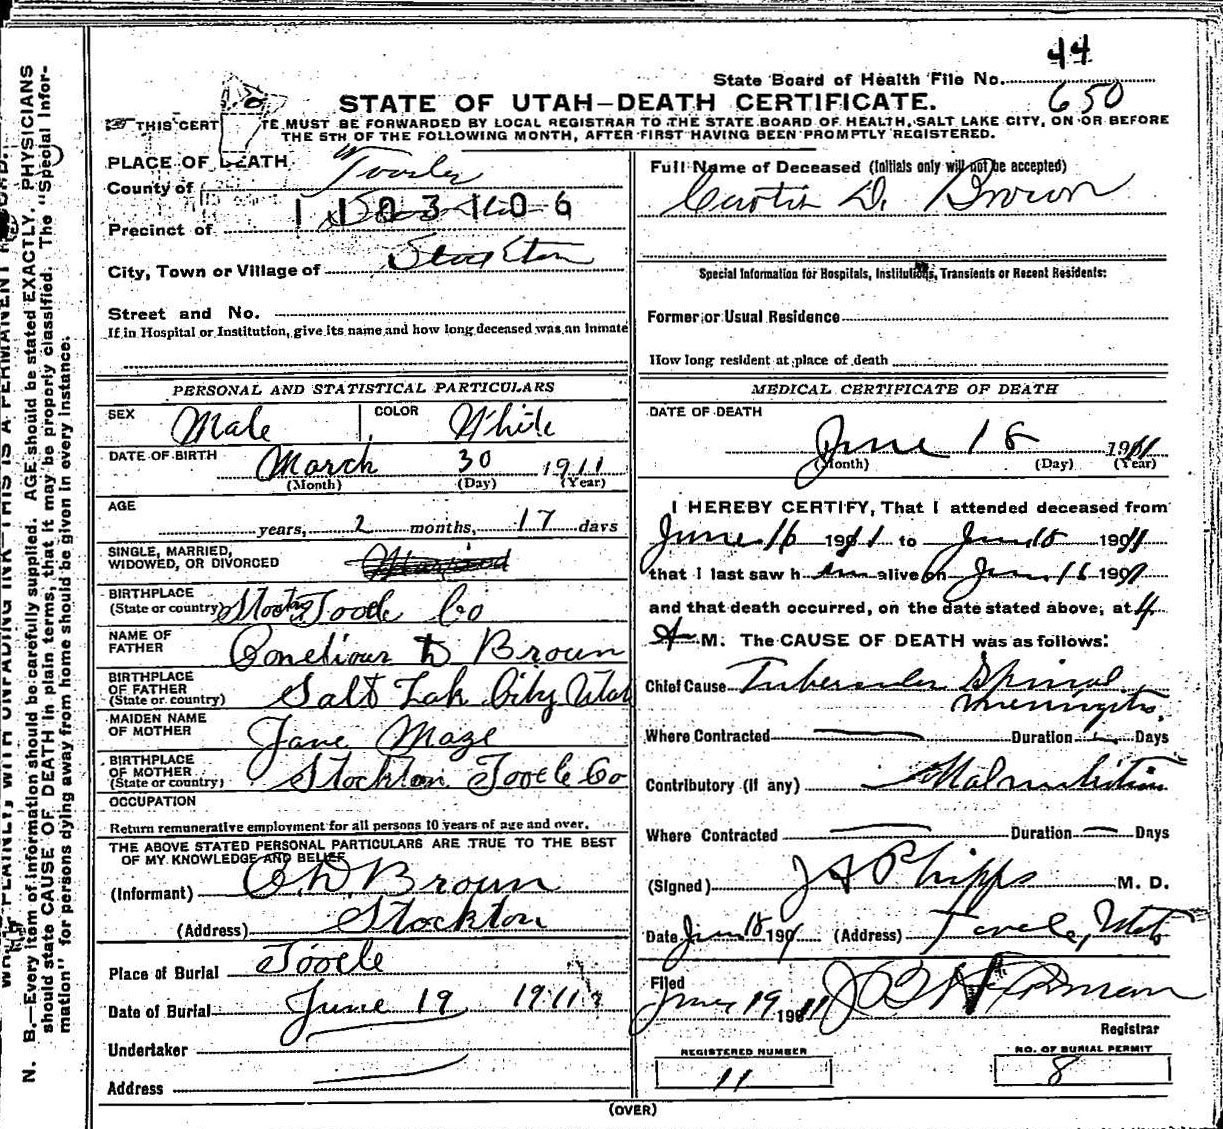 44
State Board of Health File No. 650
STATE OF UTAH—DEATH CERTIFICATE.
THIS CERT TE MUST BE FORWARDED BY LOCAL REGISTRAR TO THE STATE BOARD OF HEALTH, SALT LAKE CITY, ON OR BEFORE
THE 5TH OF THE FOLLOWING MONTH, AFTER FIRST HAVING BEEN PROMPTLY REGISTERED.
N. B.—Every item of information should be carefully supplied. AGE should be stated EXACTLY. PHYSICIANS
should state CAUSE OF DEATH in plain terms, that it may be properly classified. The "Special Infor-
mation" for persons dying away from home should be given in every instance.
PLACE OF DEATH
County of Tooele
1103106
Precinct of
City, Town or Village of Stockton
Street and No.
If in Hospital or Institution, give its name and how long deceased was an inmate
PERSONAL AND STATISTICAL PARTICULARS
SEX Male COLOR White
DATE OF BIRTH March 30 1911
(Month) (Day) (Year)
AGE
years, 2 months, 17 days
SINGLE, MARRIED,
WIDOWED, OR DIVORCED
BIRTHPLACE
(State or country) Tooele Co
NAME OF
FATHER D Brown
BIRTHPLACE
OF FATHER
(State or country) Salt Lak City Utah
MAIDEN NAME
OF MOTHER Jane Maze
BIRTHPLACE
OF MOTHER
(State or country) Stockton Tooele Co
OCCUPATION
Return remunerative employment for all persons 10 years of age and over.
THE ABOVE STATED PERSONAL PARTICULARS ARE TRUE TO THE BEST
OF MY KNOWLEDGE AND BELIEF
(Informant) C D Brown
(Address) Stockton
Place of Burial Tooele
Date of Burial June 19 1911
Undertaker
Address
Full Name of Deceased (Initials only will not be accepted)
Curtis D. Brown
Special Information for Hospitals, Institutions, Transients or Recent Residents:
Former or Usual Residence
How long resident at place of death
MEDICAL CERTIFICATE OF DEATH
DATE OF DEATH
June 18 1911
(Month) (Day) (Year)
I HEREBY CERTIFY, That I attended deceased from
June 16 1911 to June 18 1911
that I last saw him alive on June 16 1911
and that death occurred, on the date stated above, at 4
A M. The CAUSE OF DEATH was as follows:
Chief Cause Tubercular Spinal
Meningitis.
Where Contracted Duration Days
Contributory (if any) Malnutrition
Where Contracted Duration Days
(Signed) J A Phipps M. D.
Date June 18 1911 (Address) Tooele, Utah
Filed
June 19 1911
Registrar
REGISTERED NUMBER
11
NO. OF BURIAL PERMIT
8
(OVER)